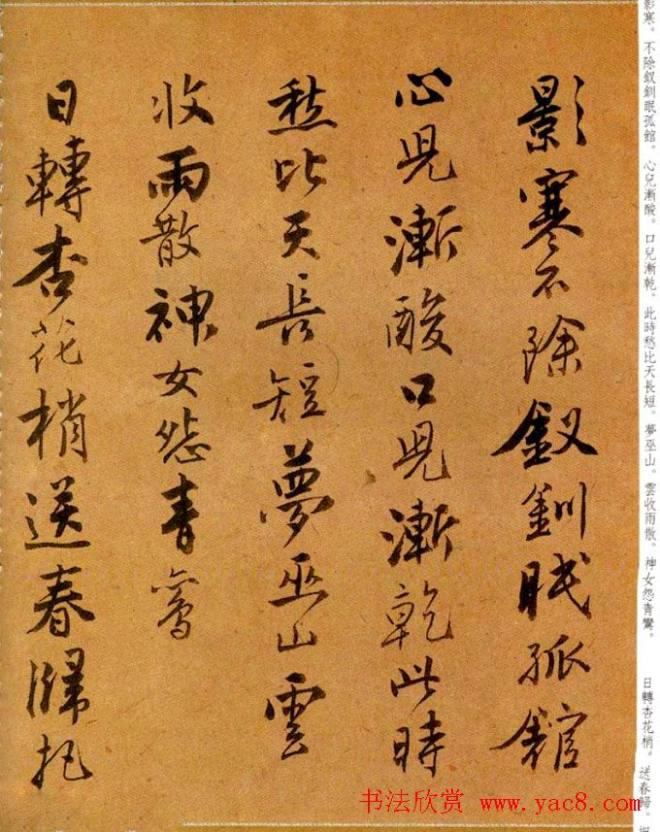 影寒不除釵釧眠孤館
心兒漸酸口兒漸乾此時
愁比天長短夢巫山雲
收雨散神女怨青鸞
日轉杏花梢送春歸把
影寒。不除釵釧眠孤館。心兒漸酸。口兒漸乾。此時愁比天長短。夢巫山。雲收雨散。神女怨青鸞。 日轉杏花梢。送春歸。把
书法欣赏 www.yac8.com